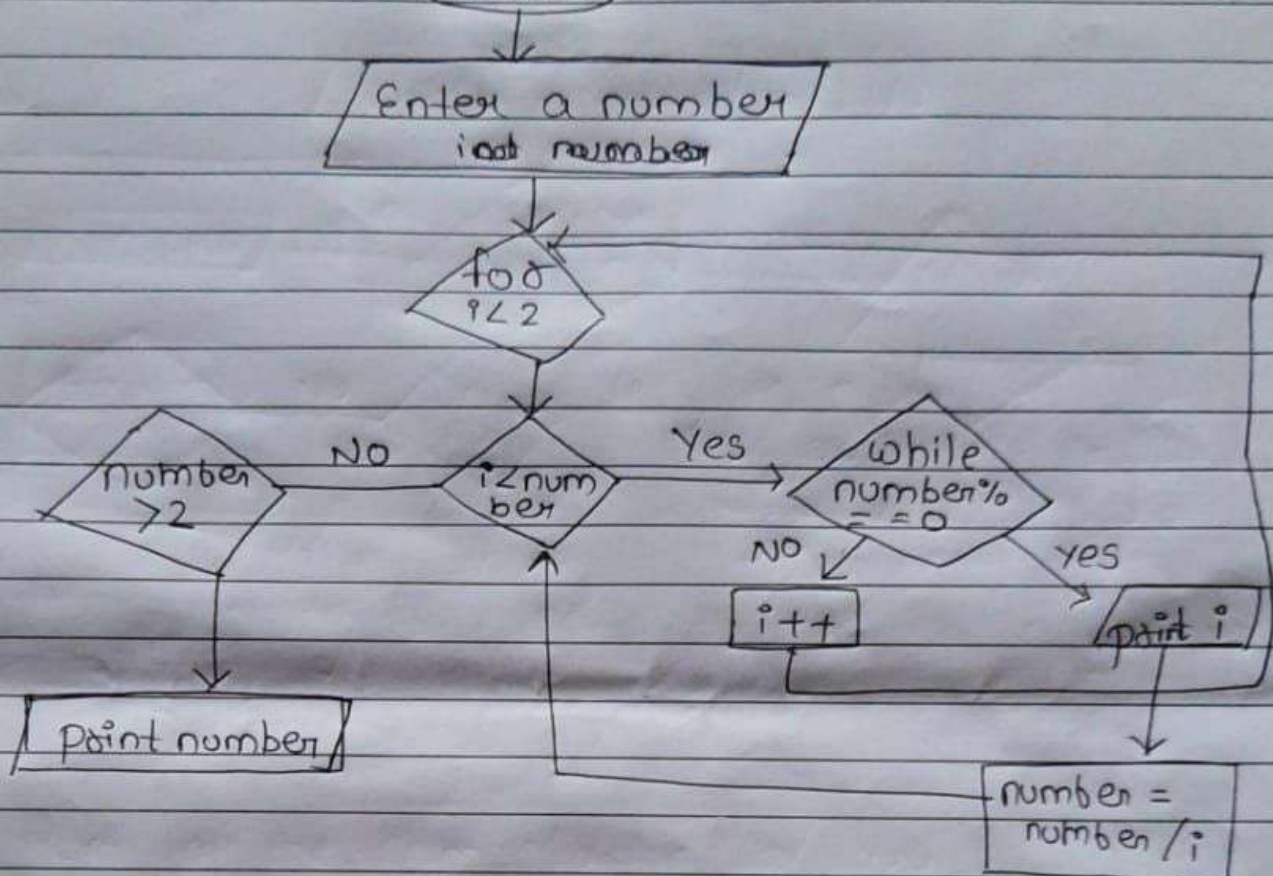 Enter a number
int number
for
i<2
number
>2
NO
i<num
ber
Yes
while
number%
= = 0
NO
yes
i++
print i
print number
number =
number /i